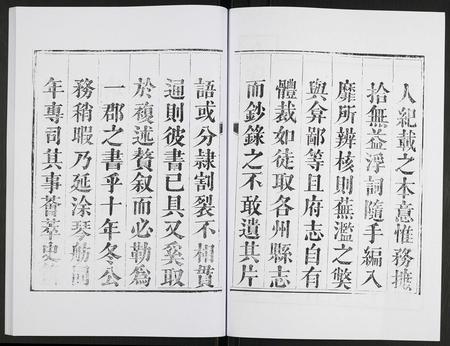 人紀載之本意惟務摭
拾無益浮詞隨手編入
靡所辨核則蕪濫之獘
與弇鄙等且府志自有
體裁如徒取各州縣志
而鈔錄之不敢遺其片
語或分隷割裂不相貫
通則彼書已具又奚取
於複述贅叙而必勒為
一郡之書乎十年冬公
務稍暇乃延涂琴舫同
年專司其事薈萃史